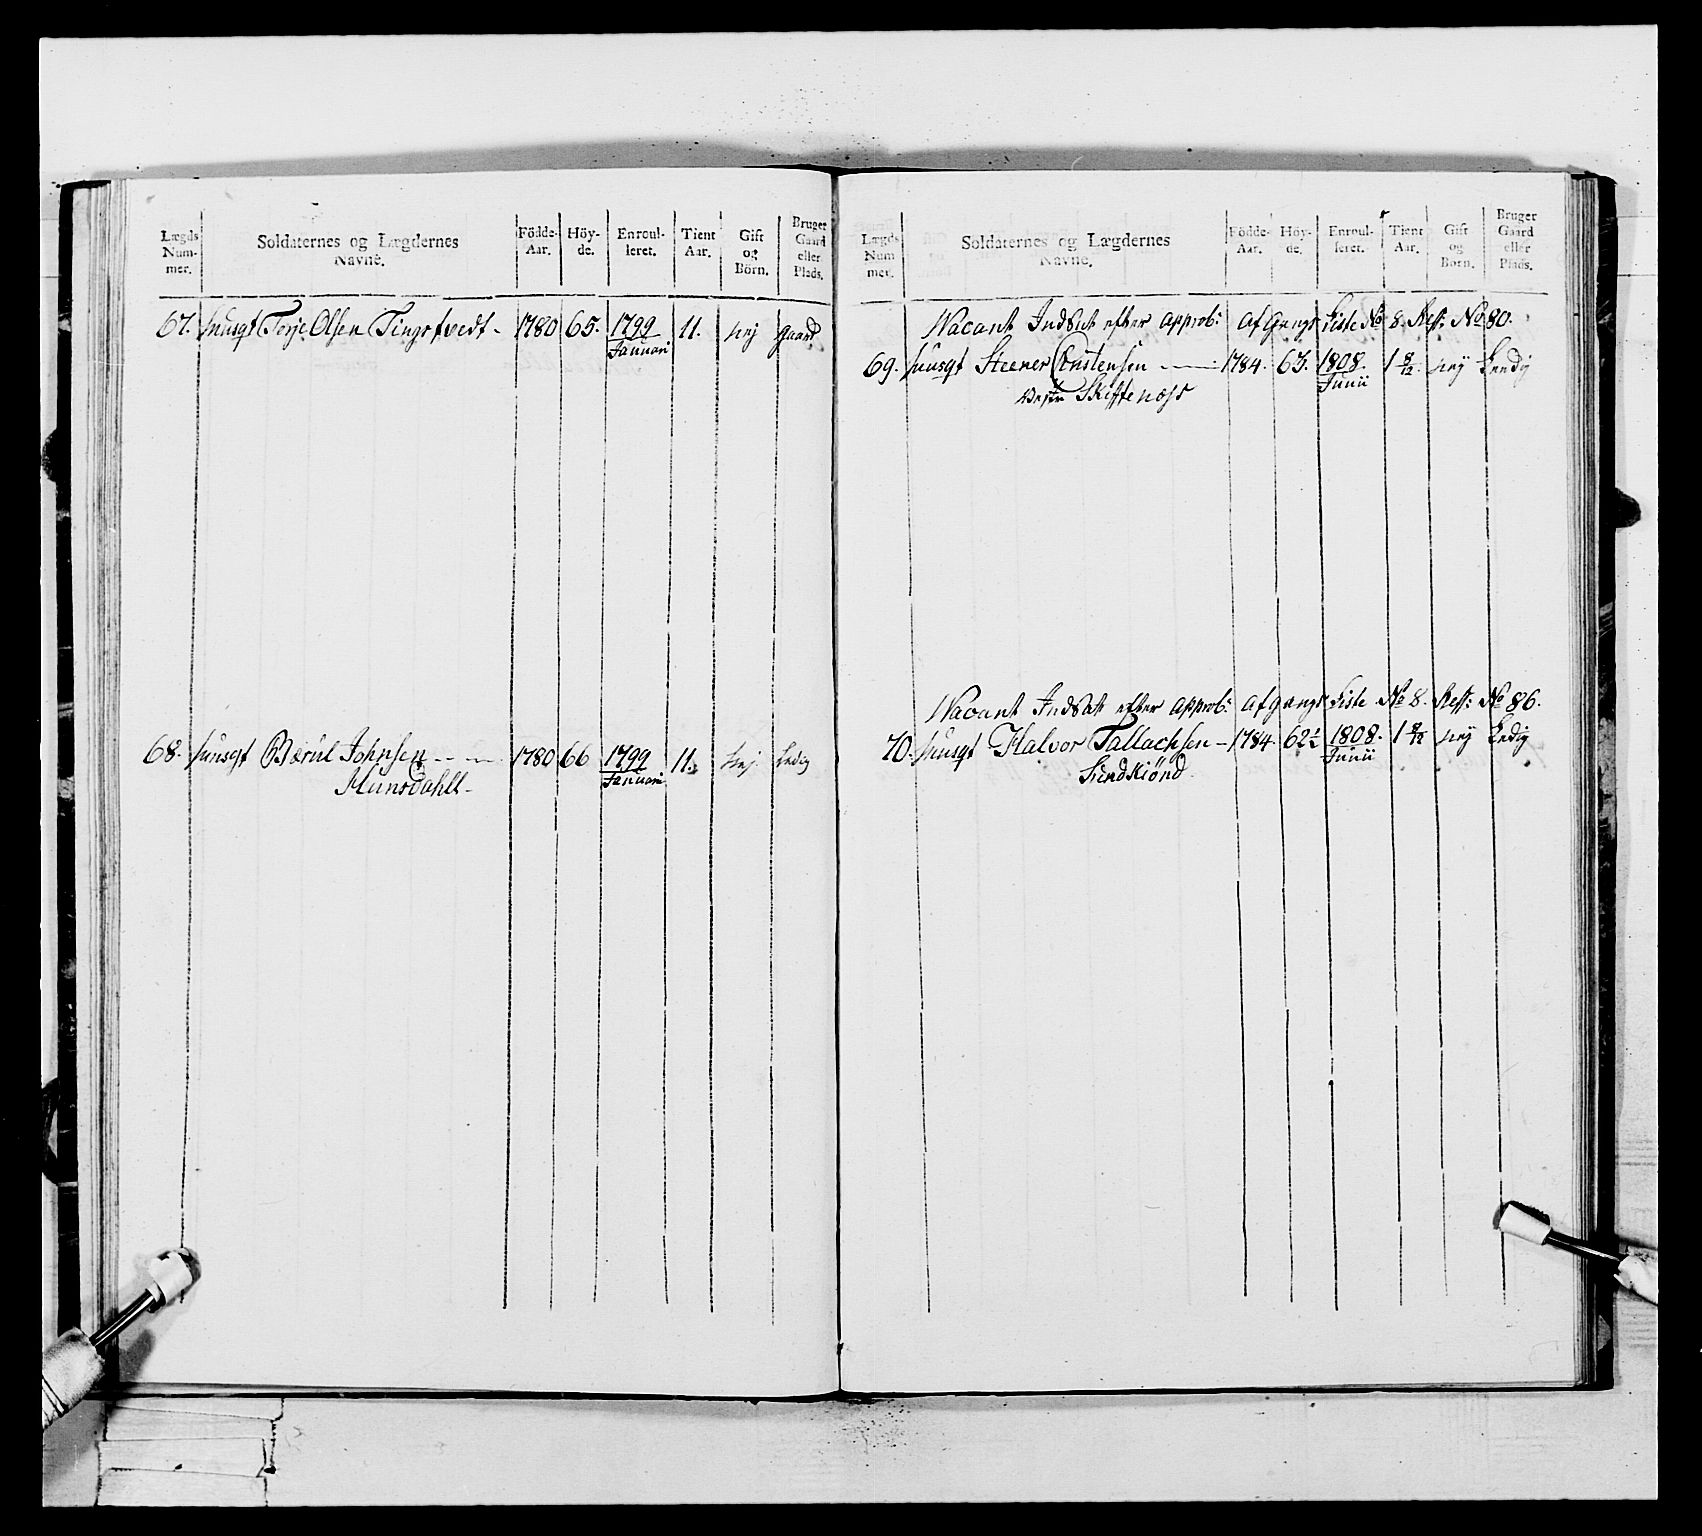 Lægds Num- mer. Soldaternes og Lægdernes Navne. Födde- Aar. Höy- de. Enroul- leret. Tient Aar. Gift og Börn. Bruger Gaard eller Plads.
67. Musqt Torje Olsen Tingstvedt - 1780 65. 1799 Januari 11. Nej Gaard
68. Musqt Bærul Johnsen - - - 1780 66 1799 Januari 11. Nej Ledig
Hunsdahll -
Lægds Num mer. Soldaternes og Lægdernes Navne. Födde- Aar. Höy- de. Enroul- leret. Tient Aar. Gift og Börn. Bruger Gaard eller Plads.
Vacant Indsat efter approb: Afgangs Liste No 8. Ress: No 80.
69. Musqt Steener Christensen - 1784. 63. 1808. Junii 1 8/12. Nej Ledig
Vestr Skiftenæss
Vacant Indsat efter approb: Afgangs Liste No 8. Ress: No 86.
70. Musqt Halvor Tallachsen - 1784. 62½ 1808. Junii 1 8/12 Nej Ledig
Sundkiönd.